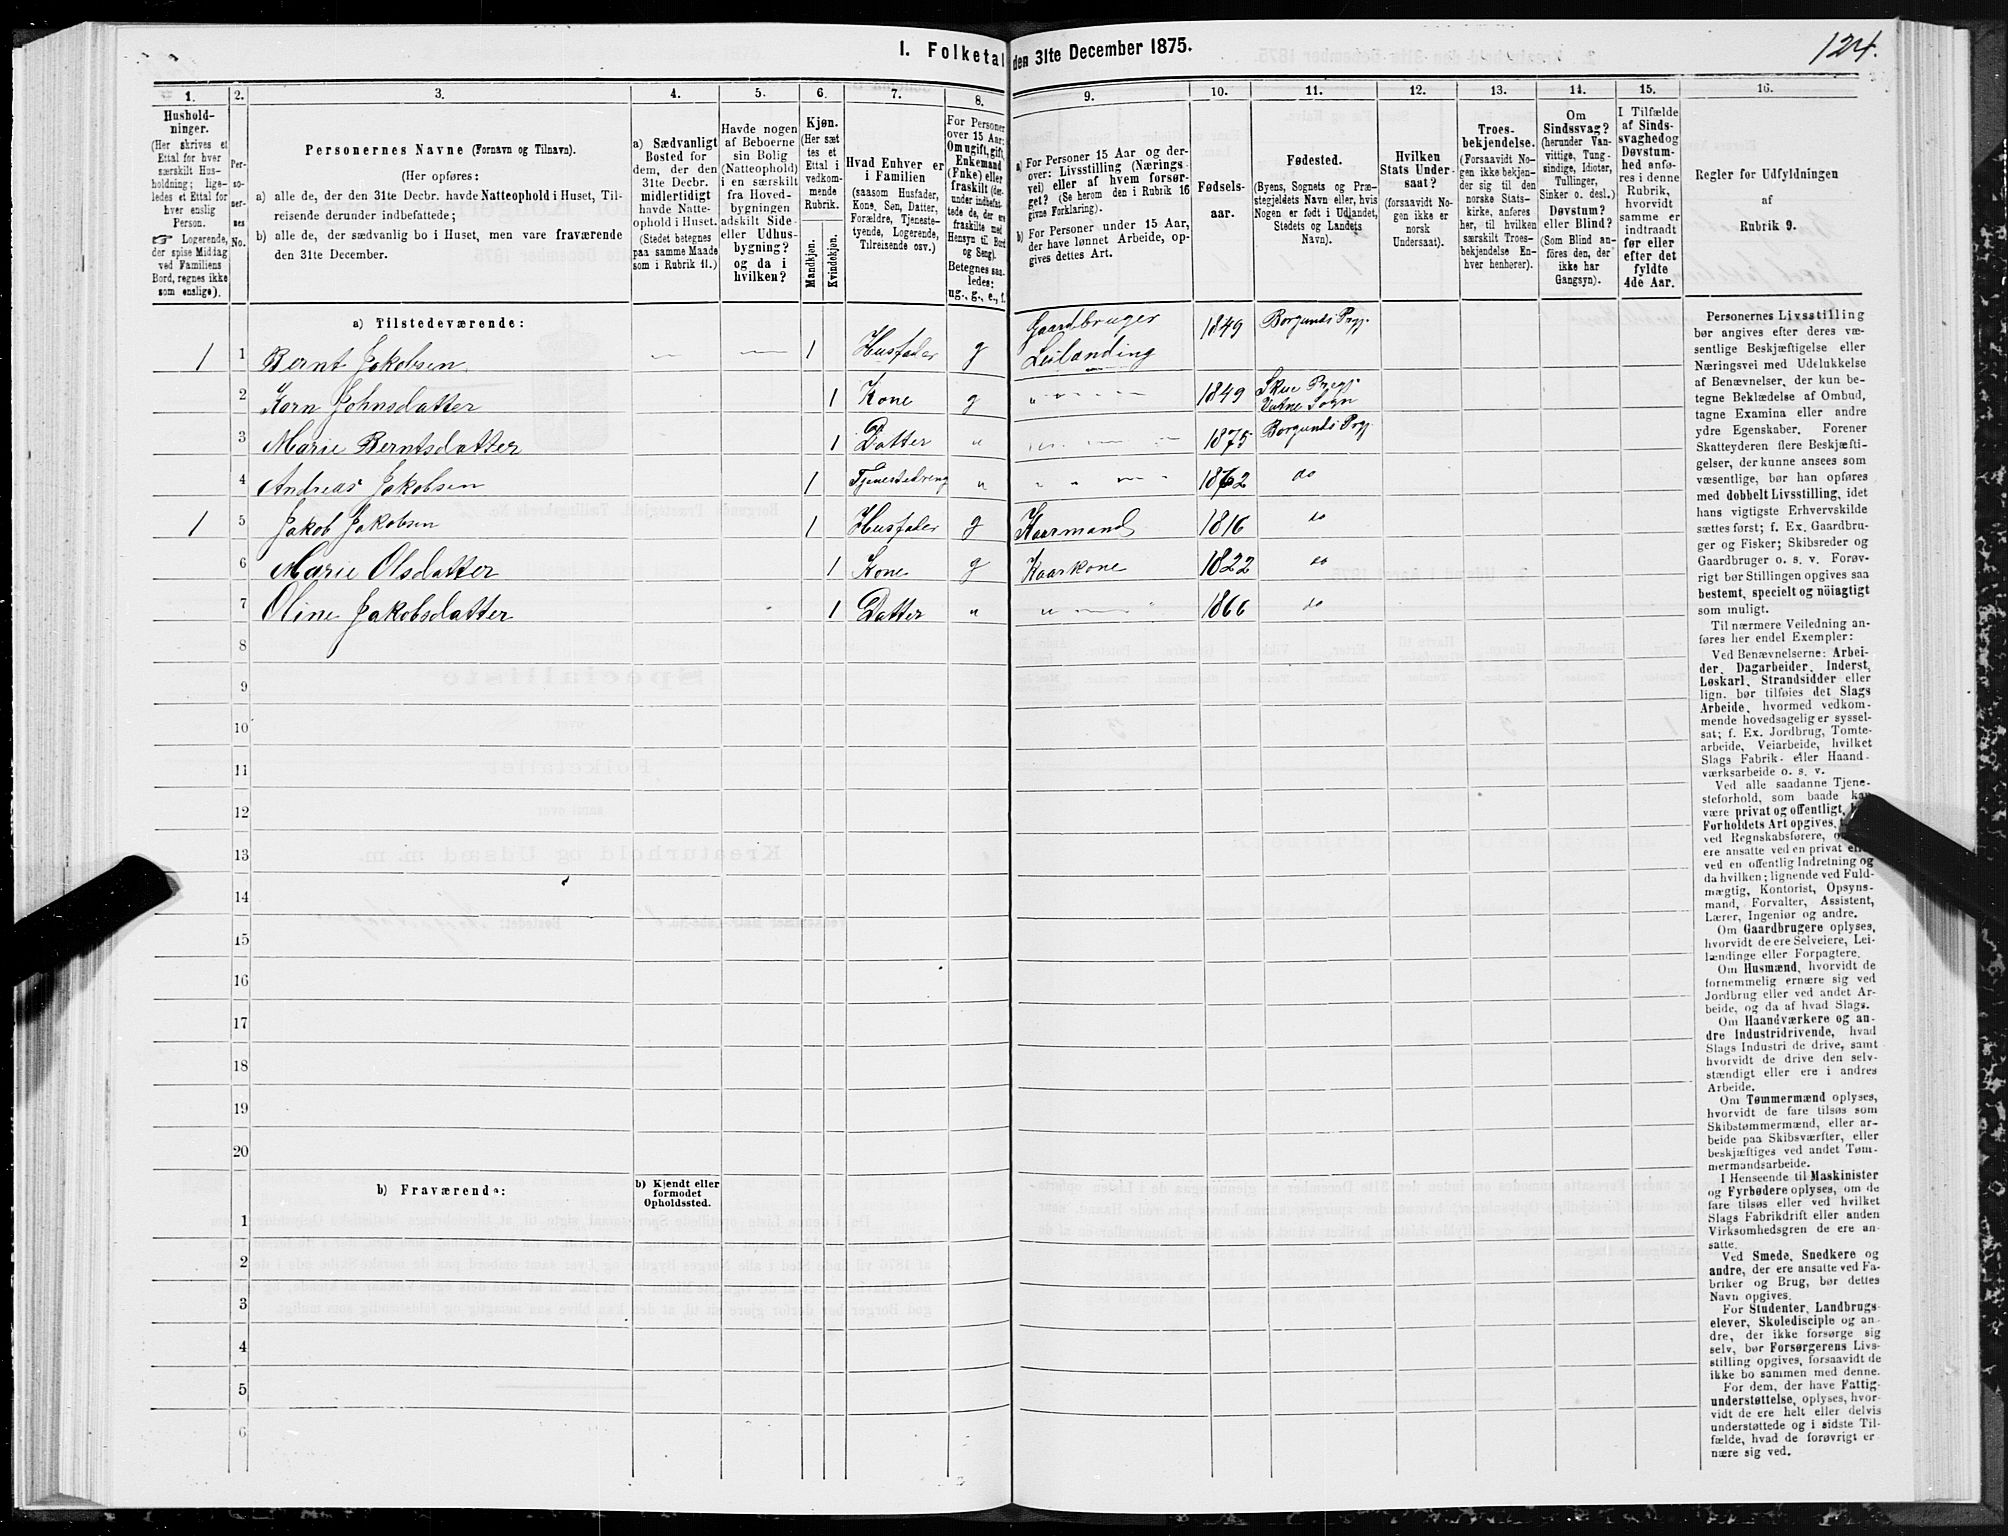 I. Folketal den 31te December 1875.
124.
1.
2.
3.
4.
5.
6.
7.
8.
9.
10.
11.
12.
13.
14.
15.
16.
Hushold-
ninger.
(Her skrives et
Ettal for hver
særskilt Hus-
holdning; lige-
ledes et Ettal for
hver enslig
Person.
☞ Logerende,
der spise Middag
ved Familiens
Bord, regnes ikke
som enslige).
Per-
so-
ner-
nes
No.
Personernes Navne (Fornavn og Tilnavn).
(Her opføres:
a) alle de, der den 31te Decbr. havde Natteophold i Huset, Til-
reisende derunder indbefattede;
b) alle de, der sædvanlig bo i Huset, men vare fraværende
den 31te December.
a) Sædvanligt
Bosted for
dem, der den
31te Decbr.
midlertidigt
havde Natte-
ophold i Huset.
(Stedet betegnes
paa samme Maade
som i Rubrik 11.)
Havde nogen
af Beboerne
sin Bolig
(Natteophold)
i en særskilt
fra Hoved-
bygningen
adskilt Side-
eller Udhus-
bygning?
og da i
hvilken?
Kjøn.
(Her sæt-
tes et
Ettal i
vedkom-
mende
Rubrik.
Mandkjøn.
Kvindekjøn.
Hvad Enhver er
i Familien
(saasom Husfader,
Kone, Søn, Datter,
Forældre, Tjeneste-
tyende, Logerende,
Tilreisende osv.)
For Personer
over 15 Aar:
Om ugift, gift,
Enkemand
(Enke) eller
fraskilt (der-
under indbefat-
tede de, der ere
fraskilte med
Hensyn til Bord
og Seng).
Betegnes saa-
ledes:
ug., g., e., f.
a) For Personer 15 Aar og der-
over: Livsstilling (Nærings-
vei) eller af hvem forsør-
get? (Se herom den i Rubrik 16
givne Forklaring).
b) For Personer under 15 Aar,
der have lønnet Arbeide, op-
gives dettes Art.
Fødsels-
aar.
Fødested.
(Byens, Sognets og Præ-
stegjeldets Navn eller, hvis
Nogen er født i Udlandet,
Stedets og Landets
Navn).
Hvilken
Stats Under-
saat?
(forsaavidt No-
gen ikke er
norsk
Undersaat).
Troes-
bekjendelse.
(Forsaavidt No-
gen ikke bekjen-
der sig til den
norske Stats-
kirke, anføres
her, til hvilken
særskilt Troes-
bekjendelse En-
hver henhører).
Om
Sindssvag?
(herunder Van-
vittige, Tung-
sindige, Idioter,
Tullinger,
Sinker o. desl.)
Døvstum?
eller Blind?
(Som Blind an-
føres den, der
ikke har
Gangsyn).
I Tilfælde
af Sinds-
svaghed og
Døvstum-
hed anfø-
res i denne
Rubrik,
hvorvidt
samme er
indtraadt
før eller
efter det
fyldte
4de Aar.
Regler for Udfyldningen
af
Rubrik 9.
a) Tilstedeværende:
1 1 Bernt Jakobsen 1 Husfader g Gaardbruger Leilænding 1849 Borgunds Prgj.
2 Korn Johnsdatter 1 Kone g 1849 Skue Pregj. Vatne Sogn
3 Marie Berntsdatter 1 Datter " 1875 Borgunds Prgj.
4 Andreas Jakobsen 1 Tjenestedreng " 1862 do
1 5 Jakob Jakobsen 1 Husfader g Kaarmand 1816 do
6 Marie Olsdatter 1 Kone g Kaarkone 1822 do
7 Oline Jakobsdatter 1 Datter " 1866 do
8
9
10
11
12
13
14
15
16
17
18
19
20
b) Fraværende:
b) Kjendt eller
formodet
Opholdssted.
1
2
3
4
5
6
Personernes Livsstilling
bør angives efter deres væ-
sentlige Beskjæftigelse eller
Næringsvei med Udelukkelse
af Benævnelser, der kun be-
tegne Beklædelse af Ombud,
tagne Examina eller andre
ydre Egenskaber. Forener
Skatteyderen flere Beskjæfti-
gelser, der kunne ansees som
væsentlige, bør han opføres
med dobbelt Livsstilling, idet
hans vigtigste Erhvervskilde
sættes først; f. Ex. Gaardbru-
ger og Fisker; Skibsreder og
Gaardbruger o. s. v. Forøv-
rigt bør Stillingen opgives saa
bestemt, specielt og nöiagtigt
som muligt.
Til nærmere Veiledning an-
føres her endel Exempler:
Ved Benævnelserne: Arbei-
der, Dagarbeider, Inderst,
Løskarl, Strandsidder eller
lign. bør tilføies det Slags
Arbeide, hvormed vedkom-
mende hovedsagelig er syssel-
sat; f. Ex. Jordbrug, Tomte-
arbeide, Veiarbeide, hvilket
Slags Fabrik- eller Haand-
værksarbeide o. s. v.
Ved alle saadanne Tjene-
steforhold, som baade kan
være privat og offentligt,
Forholdets Art opgives,
ved Regnskabsførere,
ere ansatte ved en privat
ved en offentlig Indretning og
da hvilken; lignende ved Fuld-
mægtig, Kontorist, Opsyns-
mand, Forvalter, Assistent,
Lærer, Ingeniør og andre.
Om Gaardbrugere oplyses,
hvorvidt de ere Selveiere, Lei-
lændinge eller Forpagtere.
Om Husmænd, hvorvidt de
fornemmelig ernære sig ved
Jordbrug eller ved andet Ar-
beide, og da af hvad Slags.
Om Haandværkere og an-
dre Industridrivende, hvad
Slags Industri de drive, samt
hvorvidt de drive den selv-
stændigt eller ere i andres
Arbeide.
Om Tømmermænd oplyses,
hvorvidt de fare tilsøs som
Skibstømmermænd, eller ar-
beide paa Skibsværfter, eller
beskjæftiges ved andet Tøm-
mermandsarbeide.
I Henseende til Maskinister
og Fyrbødere oplyses, om de
fare tilsøs eller ved hvilket
Slags Fabrikdrift eller anden
Virksomhedsgren de ere an-
satte.
Ved Smede, Snedkere og
andre, der ere ansatte ved Fa-
briker og Brug, bør dettes
Navn opgives.
For Studenter, Landbrugs-
elever, Skoledisciple og an-
dre, der ikke forsørge sig
selv, bør Forsørgerens Livs-
stilling opgives, forsaavidt de
ikke bo sammen med denne.
For dem, der have Fattig-
understøttelse, oplyses, hvor-
vidt de ere helt eller delvis
understøttede og i sidste Til-
fælde, hvad de forøvrigt er-
nære sig ved.